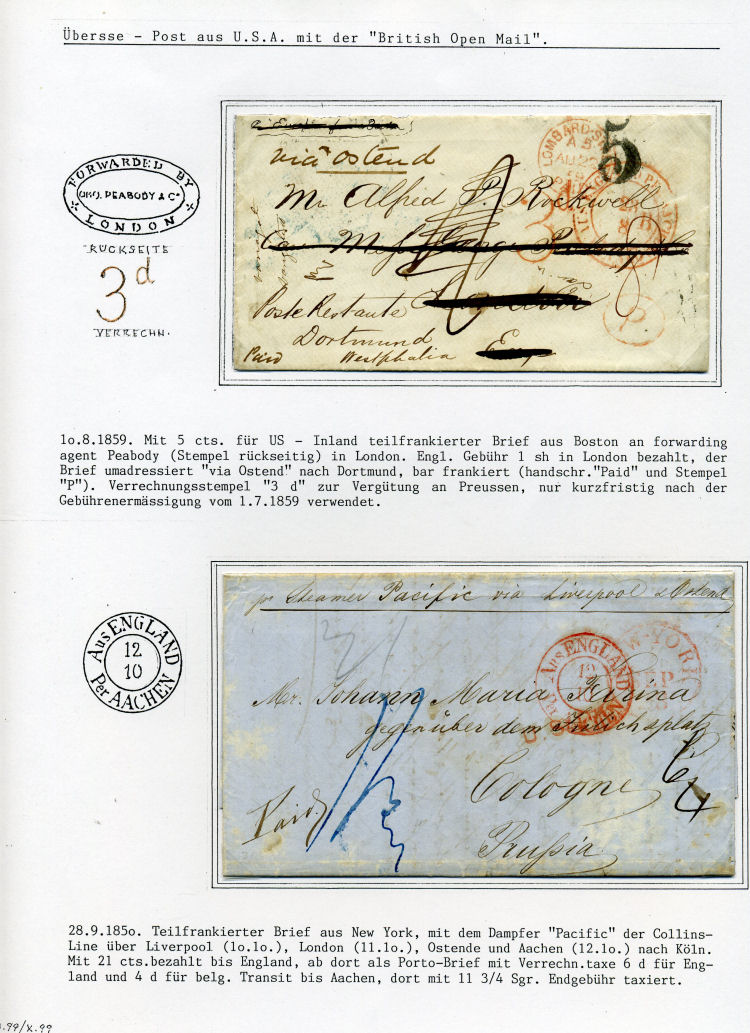 Übersse - Post aus U.S.A. mit der "British Open Mail".
FORWARDED BY
GEO. PEABODY & Co
LONDON
RÜCKSEITE
3d
VERRECHN.
via ostend
LOMBARD-ST
5
Mr Alfred P. Rockwell
3
Poste Restante
P
Dortmund
Paid Westphalia
1o.8.1859. Mit 5 cts. für US - Inland teilfrankierter Brief aus Boston an forwarding
agent Peabody (Stempel rückseitig) in London. Engl. Gebühr 1 sh in London bezahlt, der
Brief umadressiert "via Ostend" nach Dortmund, bar frankiert (handschr."Paid" und Stempel
"P"). Verrechnungsstempel "3 d" zur Vergütung an Preussen, nur kurzfristig nach der
Gebührenermässigung vom 1.7.1859 verwendet.
Aus ENGLAND
12
10
Per AACHEN
pr Steamer Pacific via Liverpool & Ostend
NEW-YORK
Aus ENGLAND
12
Mr. Johann Maria Farina
gegenüber dem Jülichsplatz
6/4
Cologne
Paid
Prussia
28.9.185o. Teilfrankierter Brief aus New York, mit dem Dampfer "Pacific" der Collins-
Line über Liverpool (1o.1o.), London (11.1o.), Ostende und Aachen (12.1o.) nach Köln.
Mit 21 cts.bezahlt bis England, ab dort als Porto-Brief mit Verrechn.taxe 6 d für Eng-
land und 4 d für belg. Transit bis Aachen, dort mit 11 3/4 Sgr. Endgebühr taxiert.